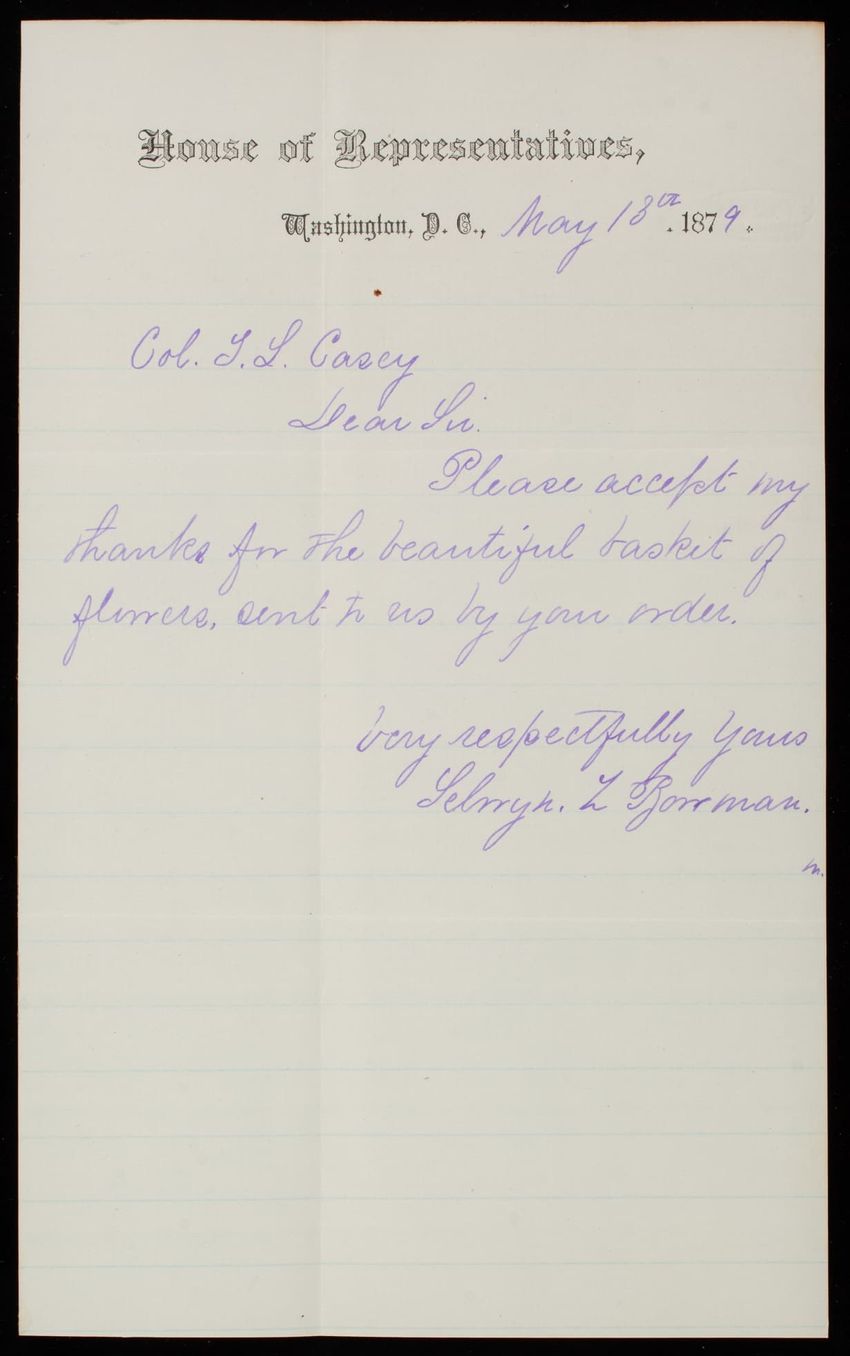 House of Representatives,
Washington, D. C., May 13th. 1879.
Col. T. L. Casey
Dear Sir.
Please accept my
thanks for the beautiful basket of
flowers, sent to us by your order.
Very respectfully Yours
Selwyn. Z Bowman.
m.